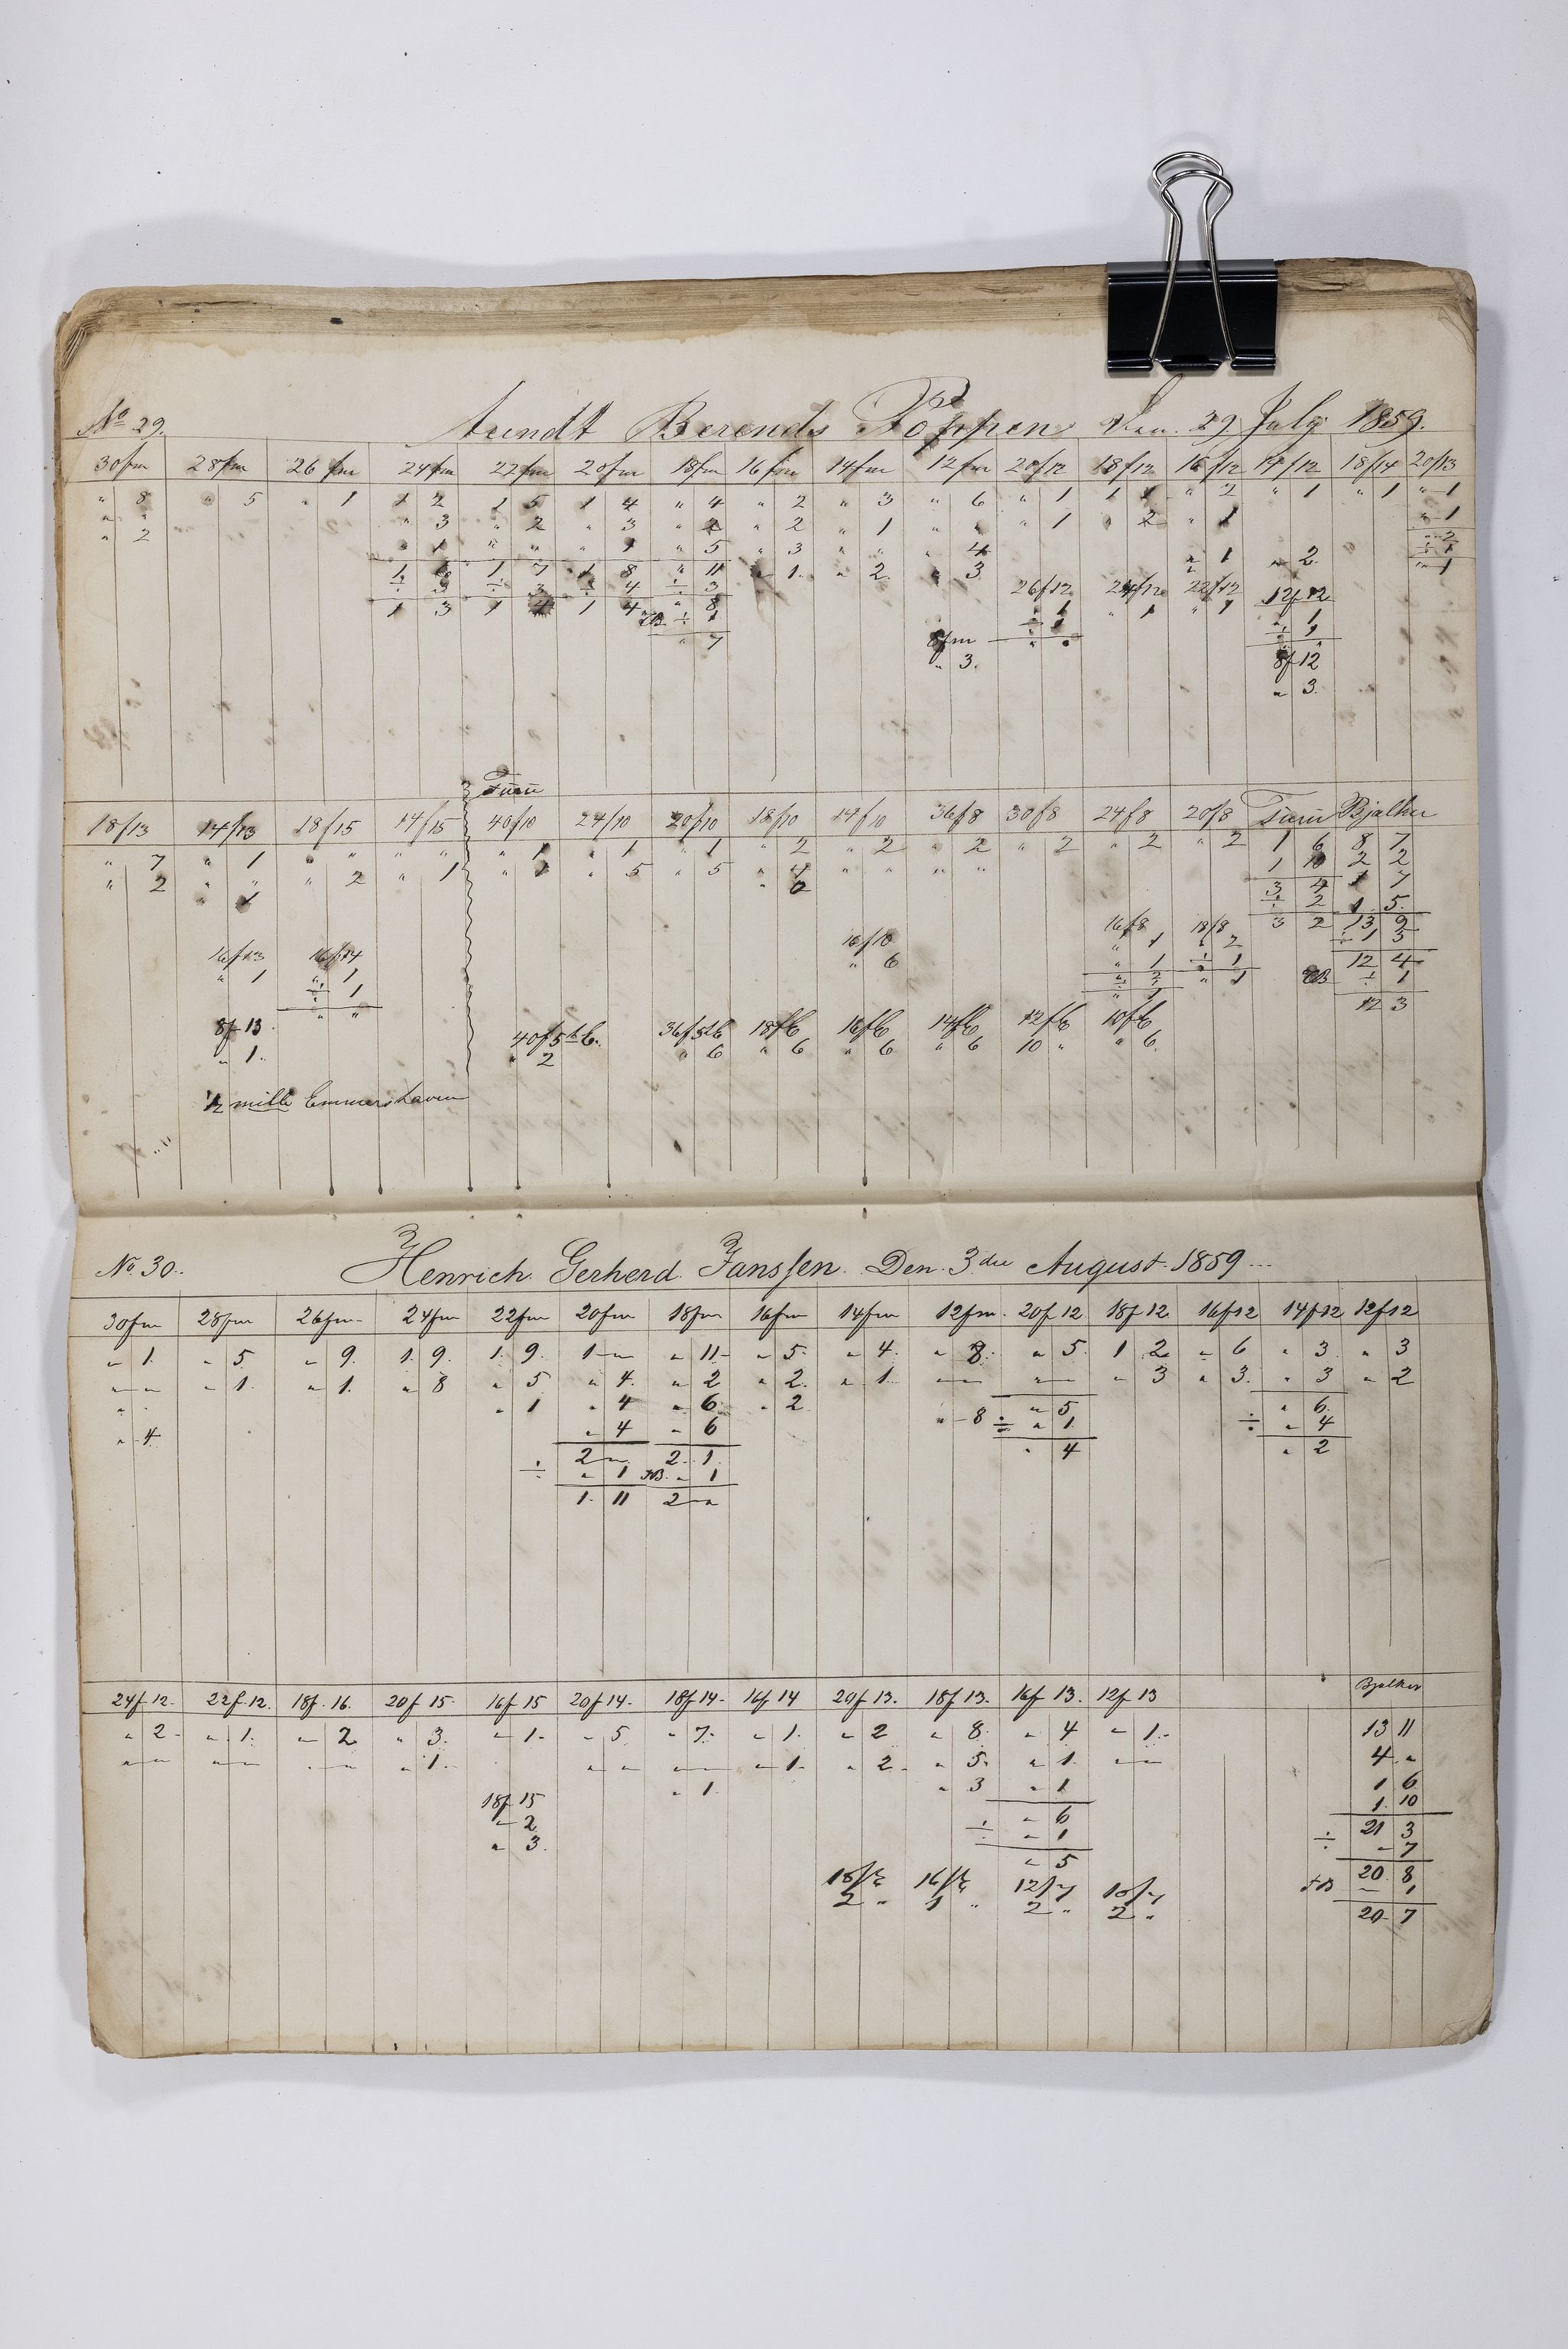 No 29. Arendt Berends Poppen Den 29 July 1859.
30fm 28fm 26fm 24fm 22fm 20fm 18fm 16fm 14fm 12fm 20/12 18/12 16/12 14/12 18/14 20/13
" 8 " 5 " 1 1 2 1 5 1 4 " 4 " 2 " 3 " 6 " 1 1 1 " 2 " 1 " 1 " 1
" " " 3 " 2 " 3 " 2 " 2 " 1 " " " 1 " 2 " 1 " 1
" 2 " 1 " " " 1 " 5 " 3 " " " 4 " 1 " 2 " 2
1 6 1 7 1 8 " 11 " 1. " 2 " 3 ÷ 1
÷ 3 ÷ 3 ÷ 4 ÷ 3 26f12 24f12 22f12 12f12 " 1
1 3 1 4 1 4 " 8 " 1 " 1 " 1 " 1
÷ 1 ÷ 1 ÷ 1
" 7 8fm " " " "
" 3. 8f12
" 3.
3 Furu
18/13 14/13 18/15 14/15 40/10 24/10 20/10 18/10 14/10 36f8 30f8 24f8 20f8 Furu Bjalker
" 7 " 1 " " " " " 1 " 1 " 1 " 2 " 2 " 2 " 2 " 2 " 2 1 6 8 7
" 2 " " " 2 " 1 " 1 " 5 " 5 " 4 " " " " 1 10 2 2
" 1 " 6 3 4 1 7
÷ 2 1 5.
16/8 18/8 3 2 13 9
16/13 16f14 16/10 " 1 " 2 ÷ 1 5
" 1 " 1 " 6 " 1 ÷ 1 12 4
÷ 1 " 2 " 1 ÷ 1
" " ÷ 1 12 3
8f 13 40f5 & 6. 36f5&6 18f6 16f6 14f6 12f6 10f6
" 1. " 2 " 6 " 6 " 6 " 6 10 " " 6.
1/2 mille Emmershaven
No. 30. Henrich Gerherd Janssen. Den 3die August 1859
30fm 28fm 26fm 24fm 22fm 20fm 18fm 16fm 14fm 12fm. 20f 12 18f 12 16f12 14f12 12f12
" 1. " 5. " 9. 1. 9. 1. 9. 1 " " 11 " 5. " 4. " 8. " 5. 1 2 " 6 " 3. " 3
" " " 1. " 1. " 8 " 5 " 4. " 2 " 2. " 1. " " " " " 3 " 3. " 3 " 2
" " " 1 " 4 " 6 " 2 " 8 " 5 " 6.
" 4 " 4 " 6 ÷ " 1. ÷ " 4
2 " 2. 1. " 4 " 2
÷ " 1 NB. " 1
1. 11 2 "
24f 12. 22f. 12. 18f. 16. 20f 15. 16f 15 20f 14. 18f 14. 16f 14 20f 13. 18f 13. 16f 13. 12f 13 Bjalker
" 2 " 1. " 2. " 3. " 1. " 5. " 7. " 1. " 2 " 8. " 4 " 1. 13 11
" " " " " " " 1. " " " " " 1. " 2. " 5. " 1. " " 4. "
" 1. " 3 " 1 1 6
18f 15 " 6 1. 10
" 2 ÷ " 1 21 3
" 3. " 5 ÷ " 7
20. 8
12/7 10/7 NB " 1
2 " 1 " 2 " 2 " 20. 7